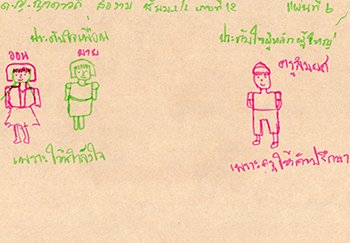 ด.ญ. ญาดาวดี สอาาม ชั้นม.1/1 เลขที่ 12 แผ่นที่ 6
ประทับใจเพื่อน
ออน มาย
เพราะให้กำลังใจ
ประทับใจผู้หลักผู้ใหญ่
ครูสมยศ
เพราะครูให้คำปรึกษา